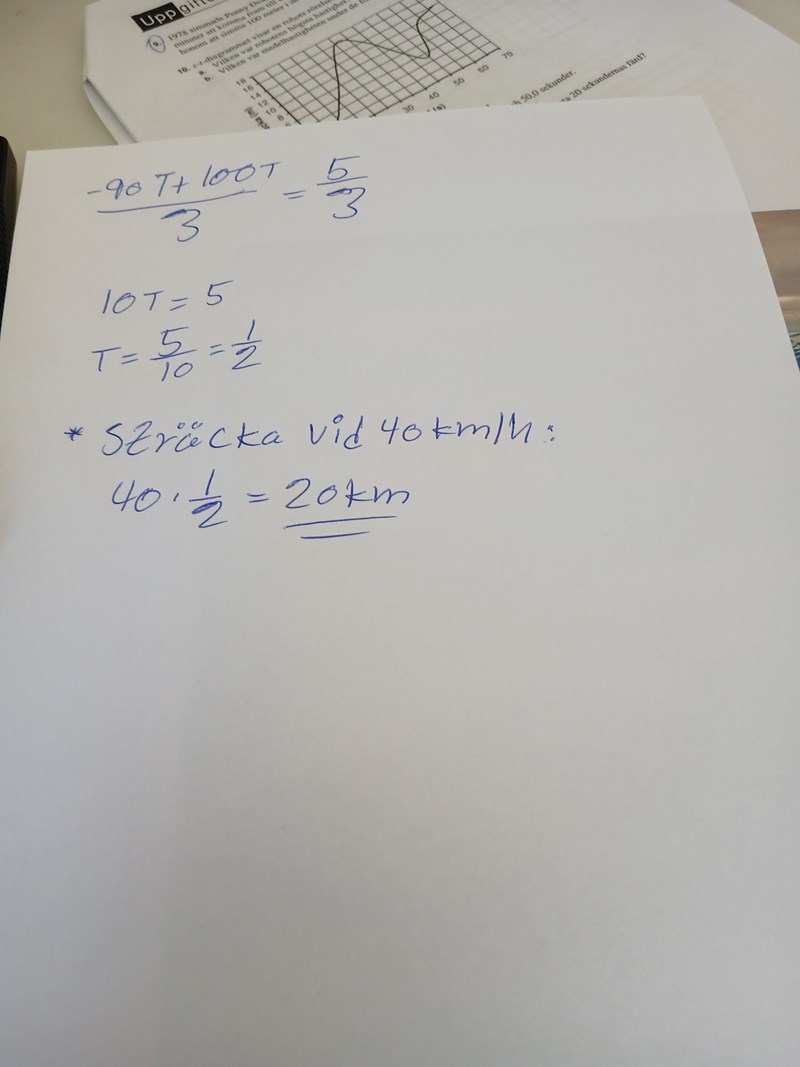 Uppgift
1978 simmade Penny De
minuter att komma fram till
honom att simma 100 meter i de
10. s-t-diagrammet visar en robots rörelse
a. Vilken var robotens högsta hastighet
b. Vilken var medelhastigheten under de
18
16
14
12
10
8
30 40 50 60 70
50,0 sekunder.
20 sekundernas färd?
-90T+100T / 3 = 5/3
10T = 5
T = 5/10 = 1/2
* Sträcka vid 40 km/h:
40 · 1/2 = 20 km